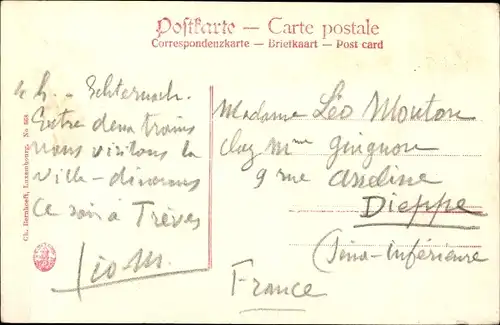 Postkarte — Carte postale
Correspondenzkarte — Briefkaart — Post card
4 h. - Echternach.
Entre deux trains
nous visitons la
ville - dinerons
ce soir à Trèves
Léo M.
Madame Léo Mouton
chez Mme
9 rue Asseline
Dieppe
(Seine-Inférieure
France
Ch. Bernhoeft, Luxembourg. No